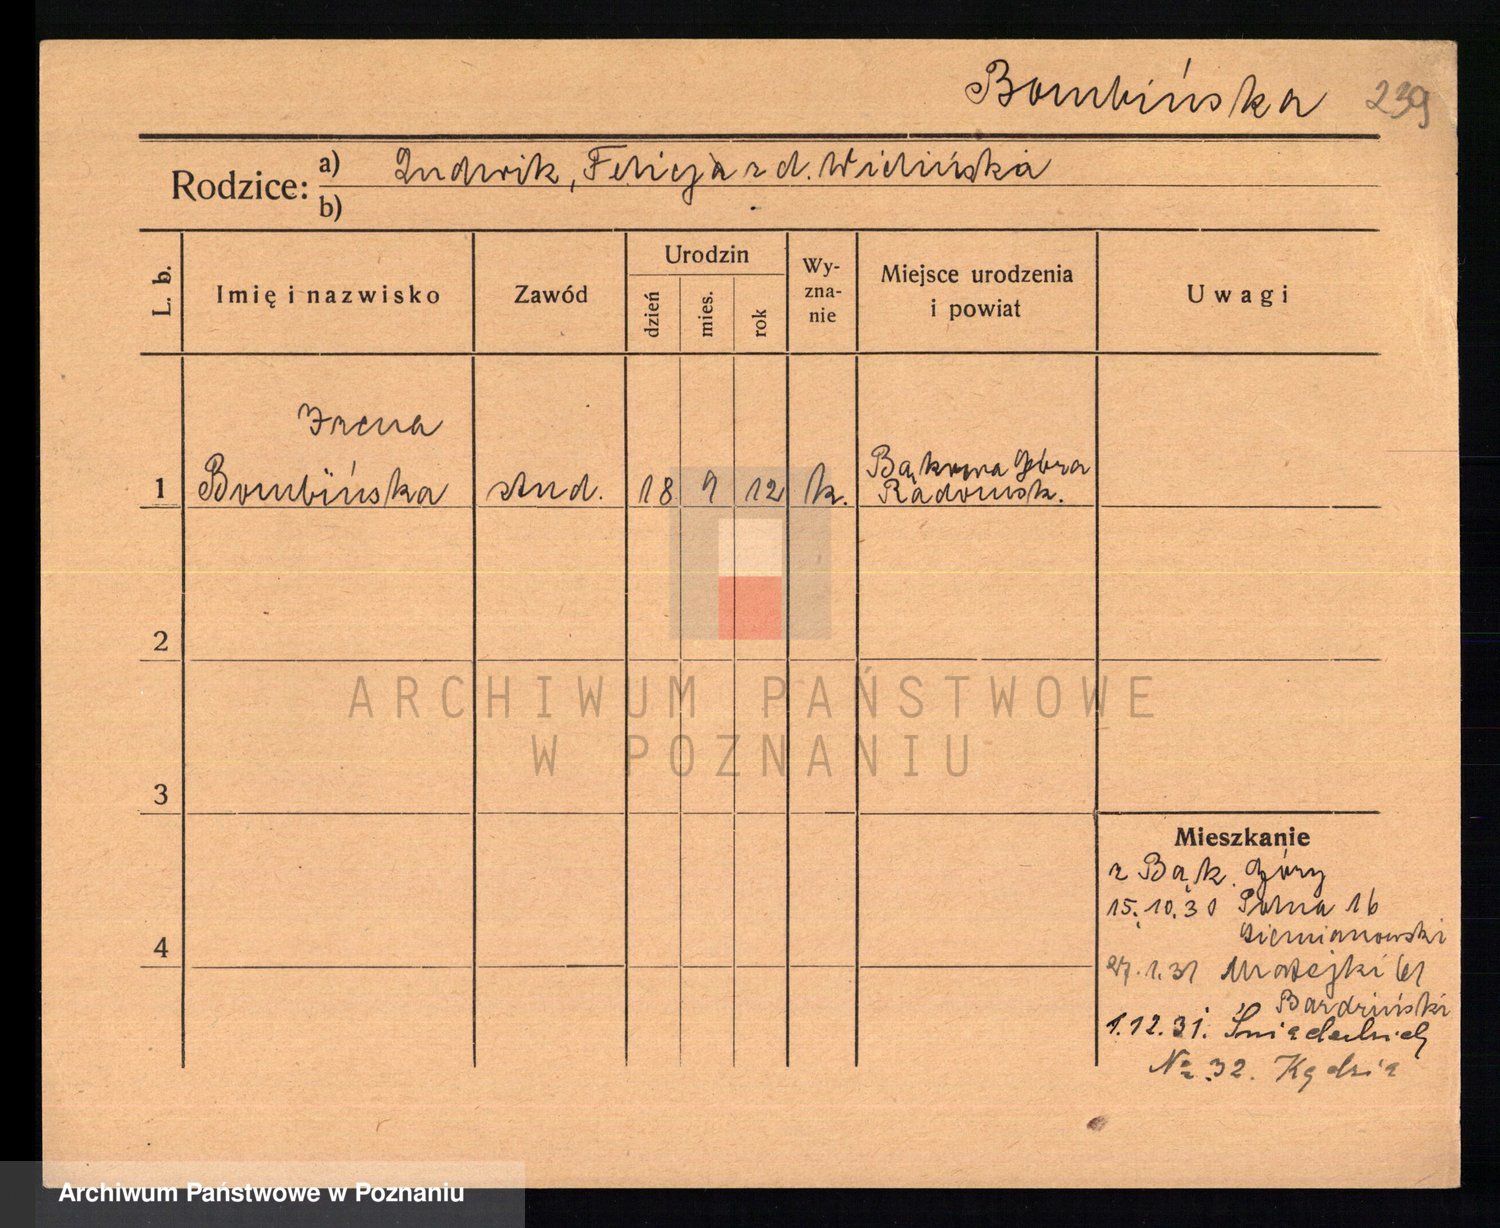 Bombińska 239
Rodzice: a) Ludwik, Felicja z d. Wielińska
b)
L. b.
Imię i nazwisko
Zawód
Urodzin
dzień
mies.
rok
Wy-
zna-
nie
Miejsce urodzenia
i powiat
Uwagi
Irena
1 Bombińska stud. 18 9 12 k. Bąkowa Góra
Radomsk.
2
3
4
Mieszkanie
z Bąk. Góry
15.10.30 Polna 16
Ziemianowski
27.1.31 Matejki 61
1.12.31. Śniadeckich
No 32. Kądzia
ARCHIWUM PAŃSTWOWE
W POZNANIU
Archiwum Państwowe w Poznaniu